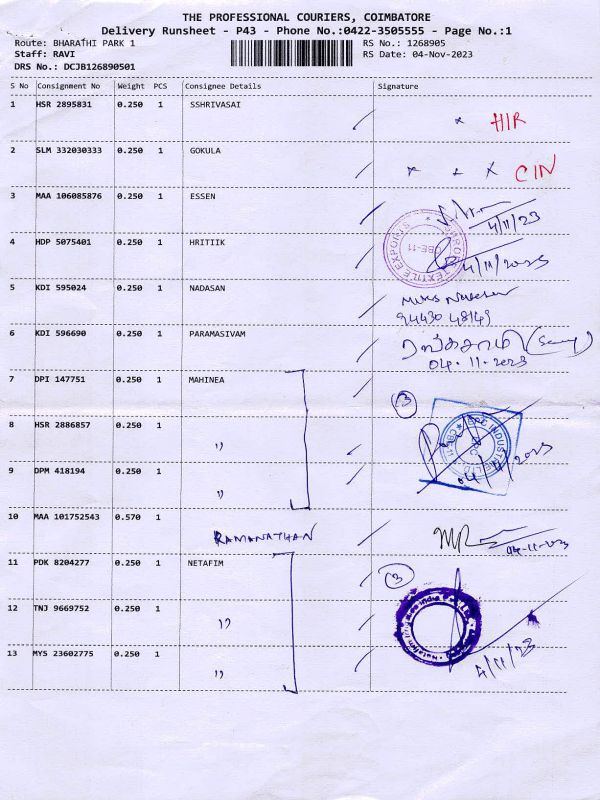 THE PROFESSIONAL COURIERS, COIMBATORE
Delivery Runsheet - P43 - Phone No.:0422-3505555 - Page No.:1
Route: BHARATHI PARK 1 RS No.: 1268905
Staff: RAVI RS Date: 04-Nov-2023
DRS No.: DCJB126890501
S No Consignment No Weight PCS Consignee Details Signature
1 HSR 2895831 0.250 1 SSHRIVASAI HIR
2 SLM 332030333 0.250 1 GOKULA CIN
3 MAA 106085876 0.250 1 ESSEN 4/11/23
4 HDP 5075401 0.250 1 HRITIIK 4/11/2023
TEXTILE EXPORTS CBE-11
5 KDI 595024 0.250 1 NADASAN
94430 48149
6 KDI 596690 0.250 1 PARAMASIVAM
04.11.2023
7 DPI 147751 0.250 1 MAHINEA 3
8 HSR 2886857 0.250 1 "
9 DPM 418194 0.250 1 " 04/11/2023
10 MAA 101752543 0.570 1 RAMANATHAN 04-11-2023
11 PDK 8204277 0.250 1 NETAFIM 3
12 TNJ 9669752 0.250 1 "
13 MYS 23602775 0.250 1 " 4/11/23